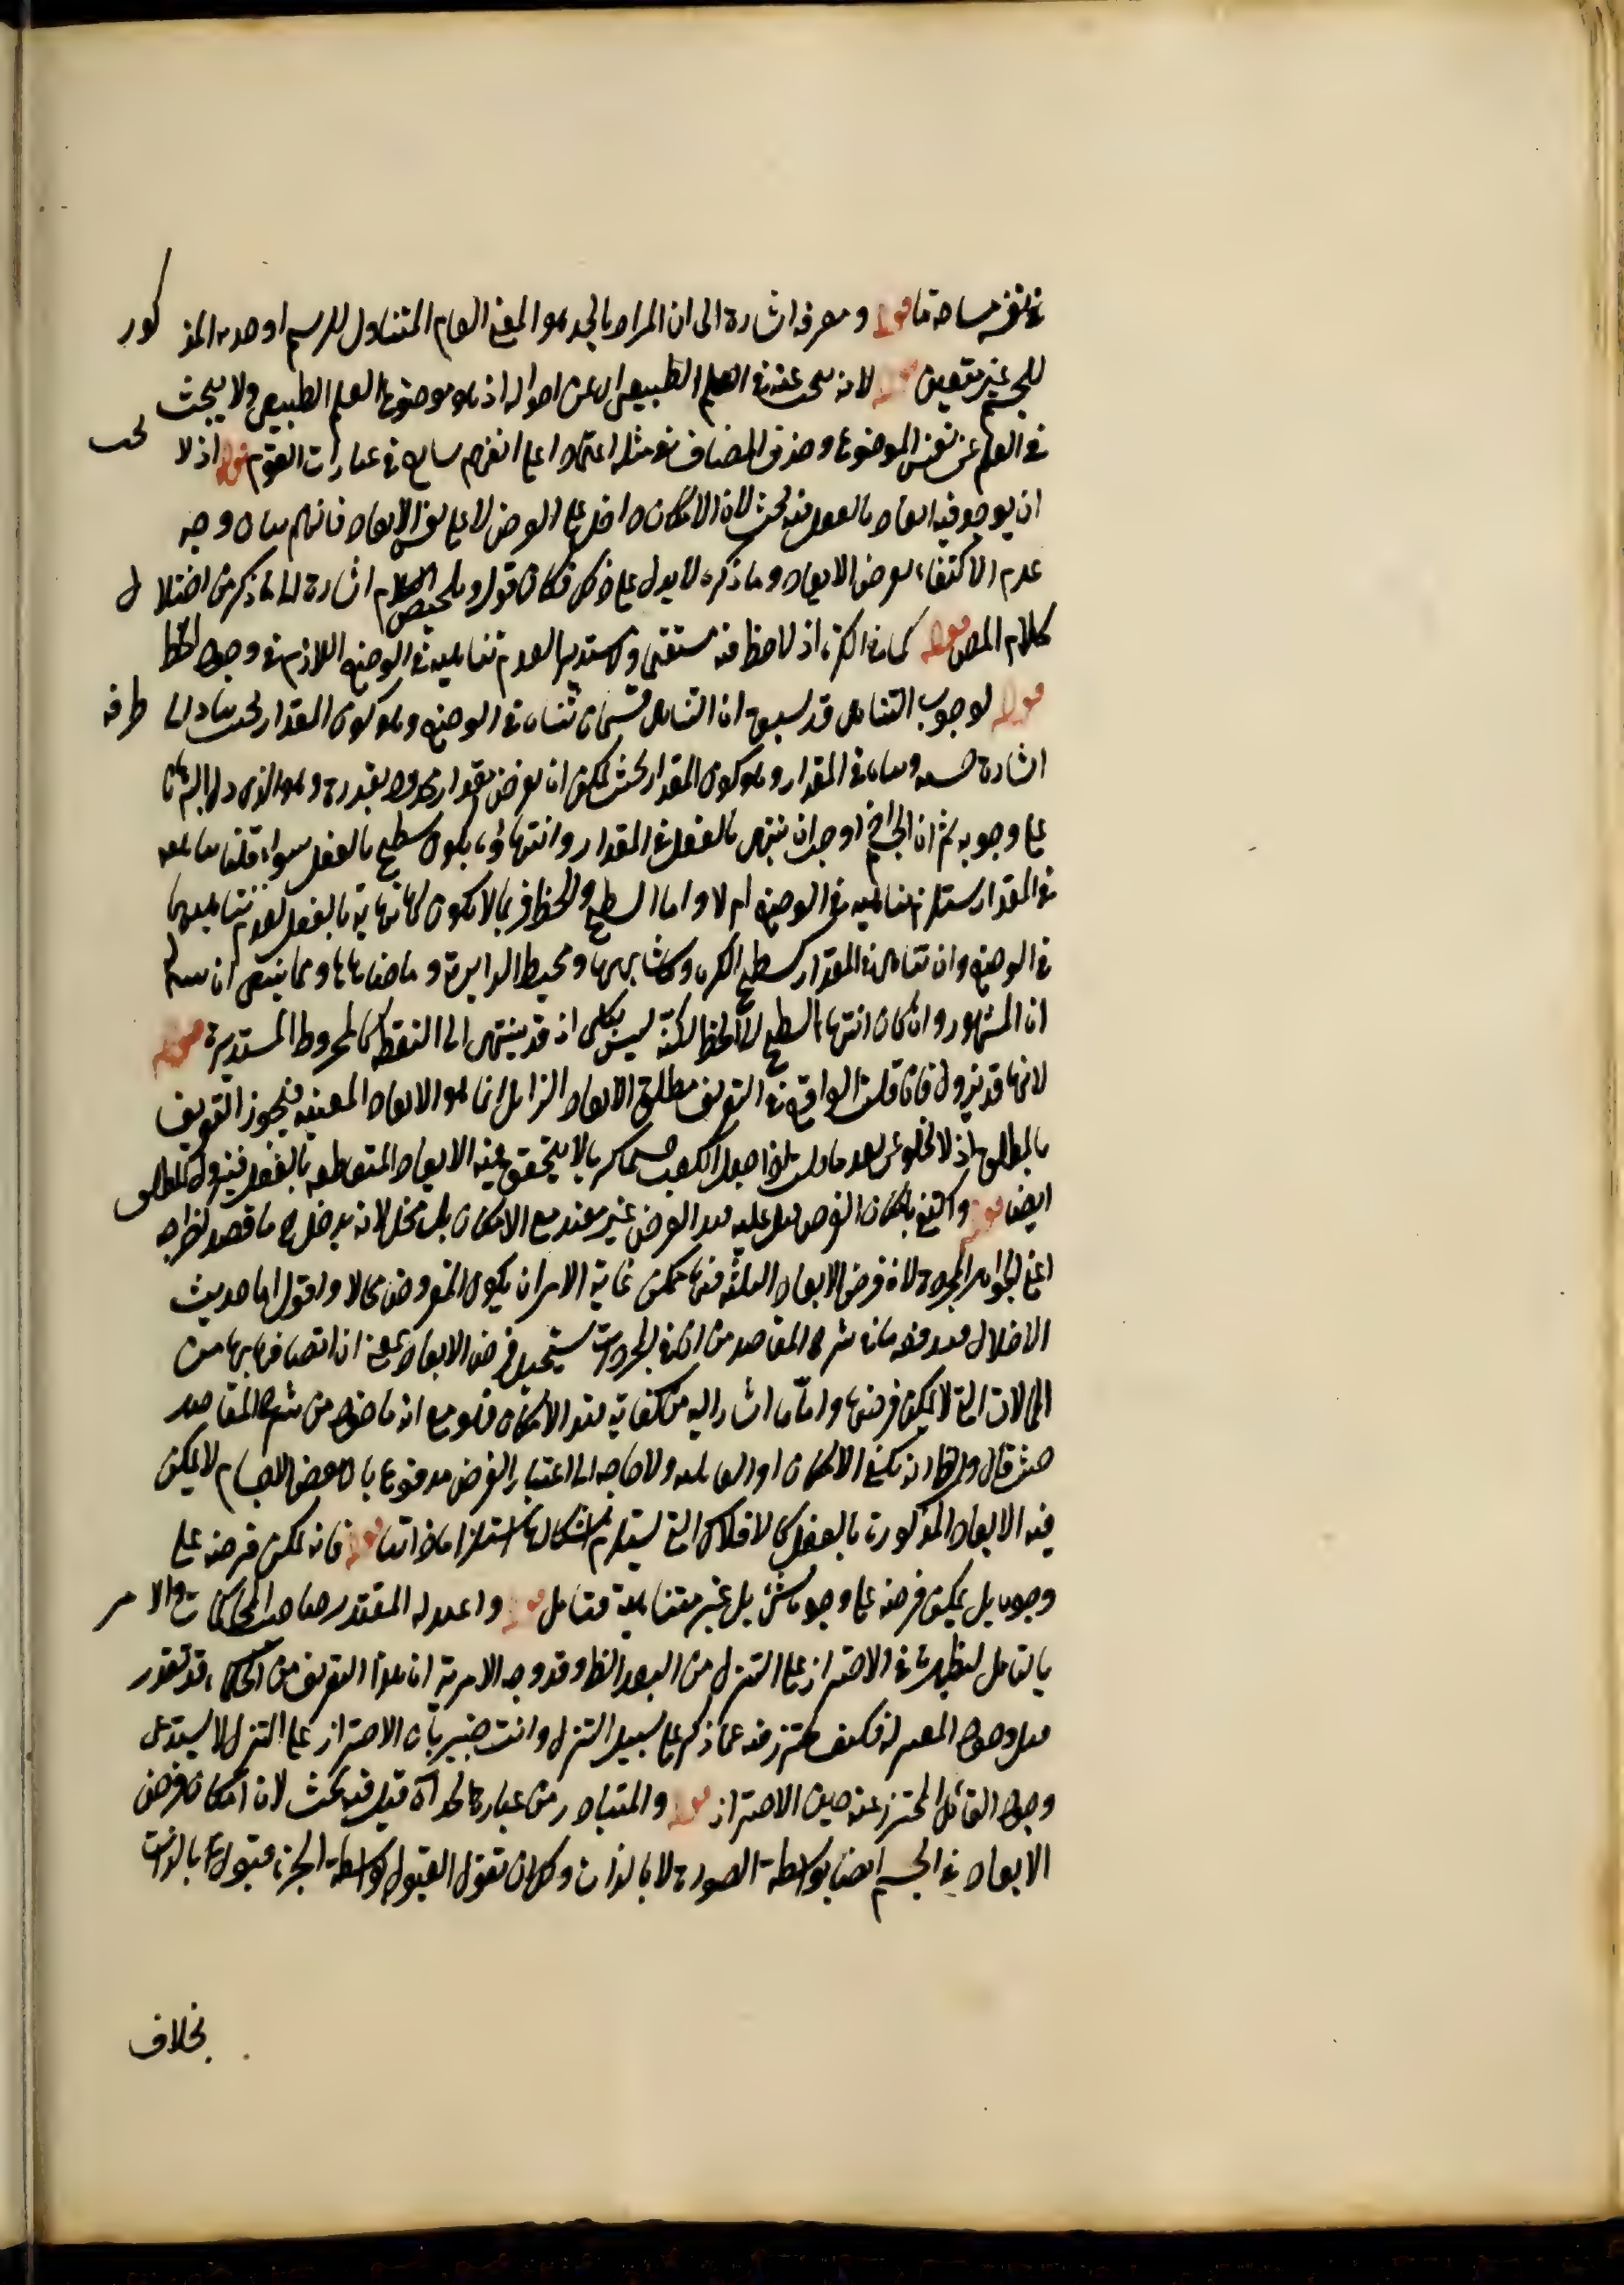 في نفسه مساحة ما قوله ومعرفه اشارة الى ان المراد بالحد هو المعنى العام المتناول للرسم او حده المذكور
للجسم غير متعين قوله لانه يبحث عنه في العلم الطبيعي اي عن احواله اذ هو موضوع العلم الطبيعي ولا يبحث
في العلم عن نفس الموضوع وحذف المضاف في مثله اعتمادا على الفهم شايع في عبارات القوم قوله اذ لا يجب
ان يوجد فيه ابعاد بالفعل فيه بحث لان الامكان داخل على الفرض لا على نفس الابعاد فاللازم بيان وجه
عدم الاكتفاء بفرض الابعاد وما ذكره لا يدل على ذلك فكان قوله وتلخيص الكلام اشارة الى ما ذكر من اختلال
كلام المص قوله كما في الكرة اذ لا خط فيه مستقيم ولا مستدير لعدم تناهيه في الوضع اللازم في وجود الخط
قوله لوجوب التناهي قد سبق ان التناهي قسمان تناه في الوضع وهو كون المقدار بحيث يشار الى طرفه
اشارة حسية وتناه في المقدار وهو كون المقدار بحيث يمكن ان يفرض مقدار محدود بقدره وهو الذي دل البرهان
على وجوبه ثم ان الجسم اذا وجب ان ينتهي بالفعل في المقدار وانتهاؤه يكون سطح بالفعل سواء قلنا تناهيه
في المقدار يستلزم تناهيه في الوضع ام لا واما السطح والخط فربما لا يكون لها نهاية بالفعل لعدم تناهيهما
في الوضع وان تناهى في المقدار كسطح الكرة وما شابهها ومحيط الدايرة وما ضاهاها ومما ينبغي ان يعلم
ان المشهور وان كان انتهاء السطح الى الخط لكنه ليس بكلي اذ قد ينتهي الى النقطة كالمخروط المستدير قوله
لانها قد يزول فان قلت الواقع في التعريف مطلق الابعاد الزايل انما هو الابعاد المعينة فيجوز التعريف
بالمطلق اذ لا يخلو عن ابعاد ما قلت اذا جعل المكعب جسما كريا لا يتحقق فيه الابعاد المتقاطعة بالفعل فيزول المطلق
ايضا قوله واكتفى بامكان الفرض قيد الفرض غير مفيد مع الامكان بل مخل لانه يدخل ما قصد اخراجه
اعني الجواهر المجردة لان فرض الابعاد الثلثة فيها ممكن غاية الامر ان يكون المفروض محالا واقول اما حديث
الاخلال فمدفوع بما في شرح المقاصد من ان في المجردات يستحيل فرض الابعاد بمعنى ان اتصافها بها من
المحالات التي لا يمكن فرضها واما ما اشار اليه من كفاية قيد الامكان فهو مع انه ماخوذ من شرح المقاصد
حيث قال والظاهر انه يكفي الامكان او القابلية ولا حاجة الى اعتبار الفرض مدفوع بان بعض الاجسام لا يمكن
فيه الابعاد المذكورة بالفعل كالافلاك التي يستلزم اشكالها استلزاما ذاتيا قوله فانه يمكن فرضه على
وجوده بل يمكن فرضه على وجوه شتى بل غير متناهية فتامل قوله واعتذر له صاحب المحاكمات والامر
بالتامل لتظهر ما في الاحتراز على التنزل من البعد الظاهر وقد وجه الامر به ان هذا التعريف من الحكماء قد تقدر
قبل وجود المعتزلة فكيف يحترز فيه عما ذكر على سبيل التنزل وانت خبير بان الاحتراز على التنزل لا يستدعي
وجود القائل المحترز عنه حين الاحتراز قوله والمتبادر من عبارة الحد آه قيل فيه بحث لان امكان فرض
الابعاد في الجسم ايضا بواسطة الصورة لا بالذات ولك ان تقول القبول بواسطة الجزء قبول بالذات
بخلاف